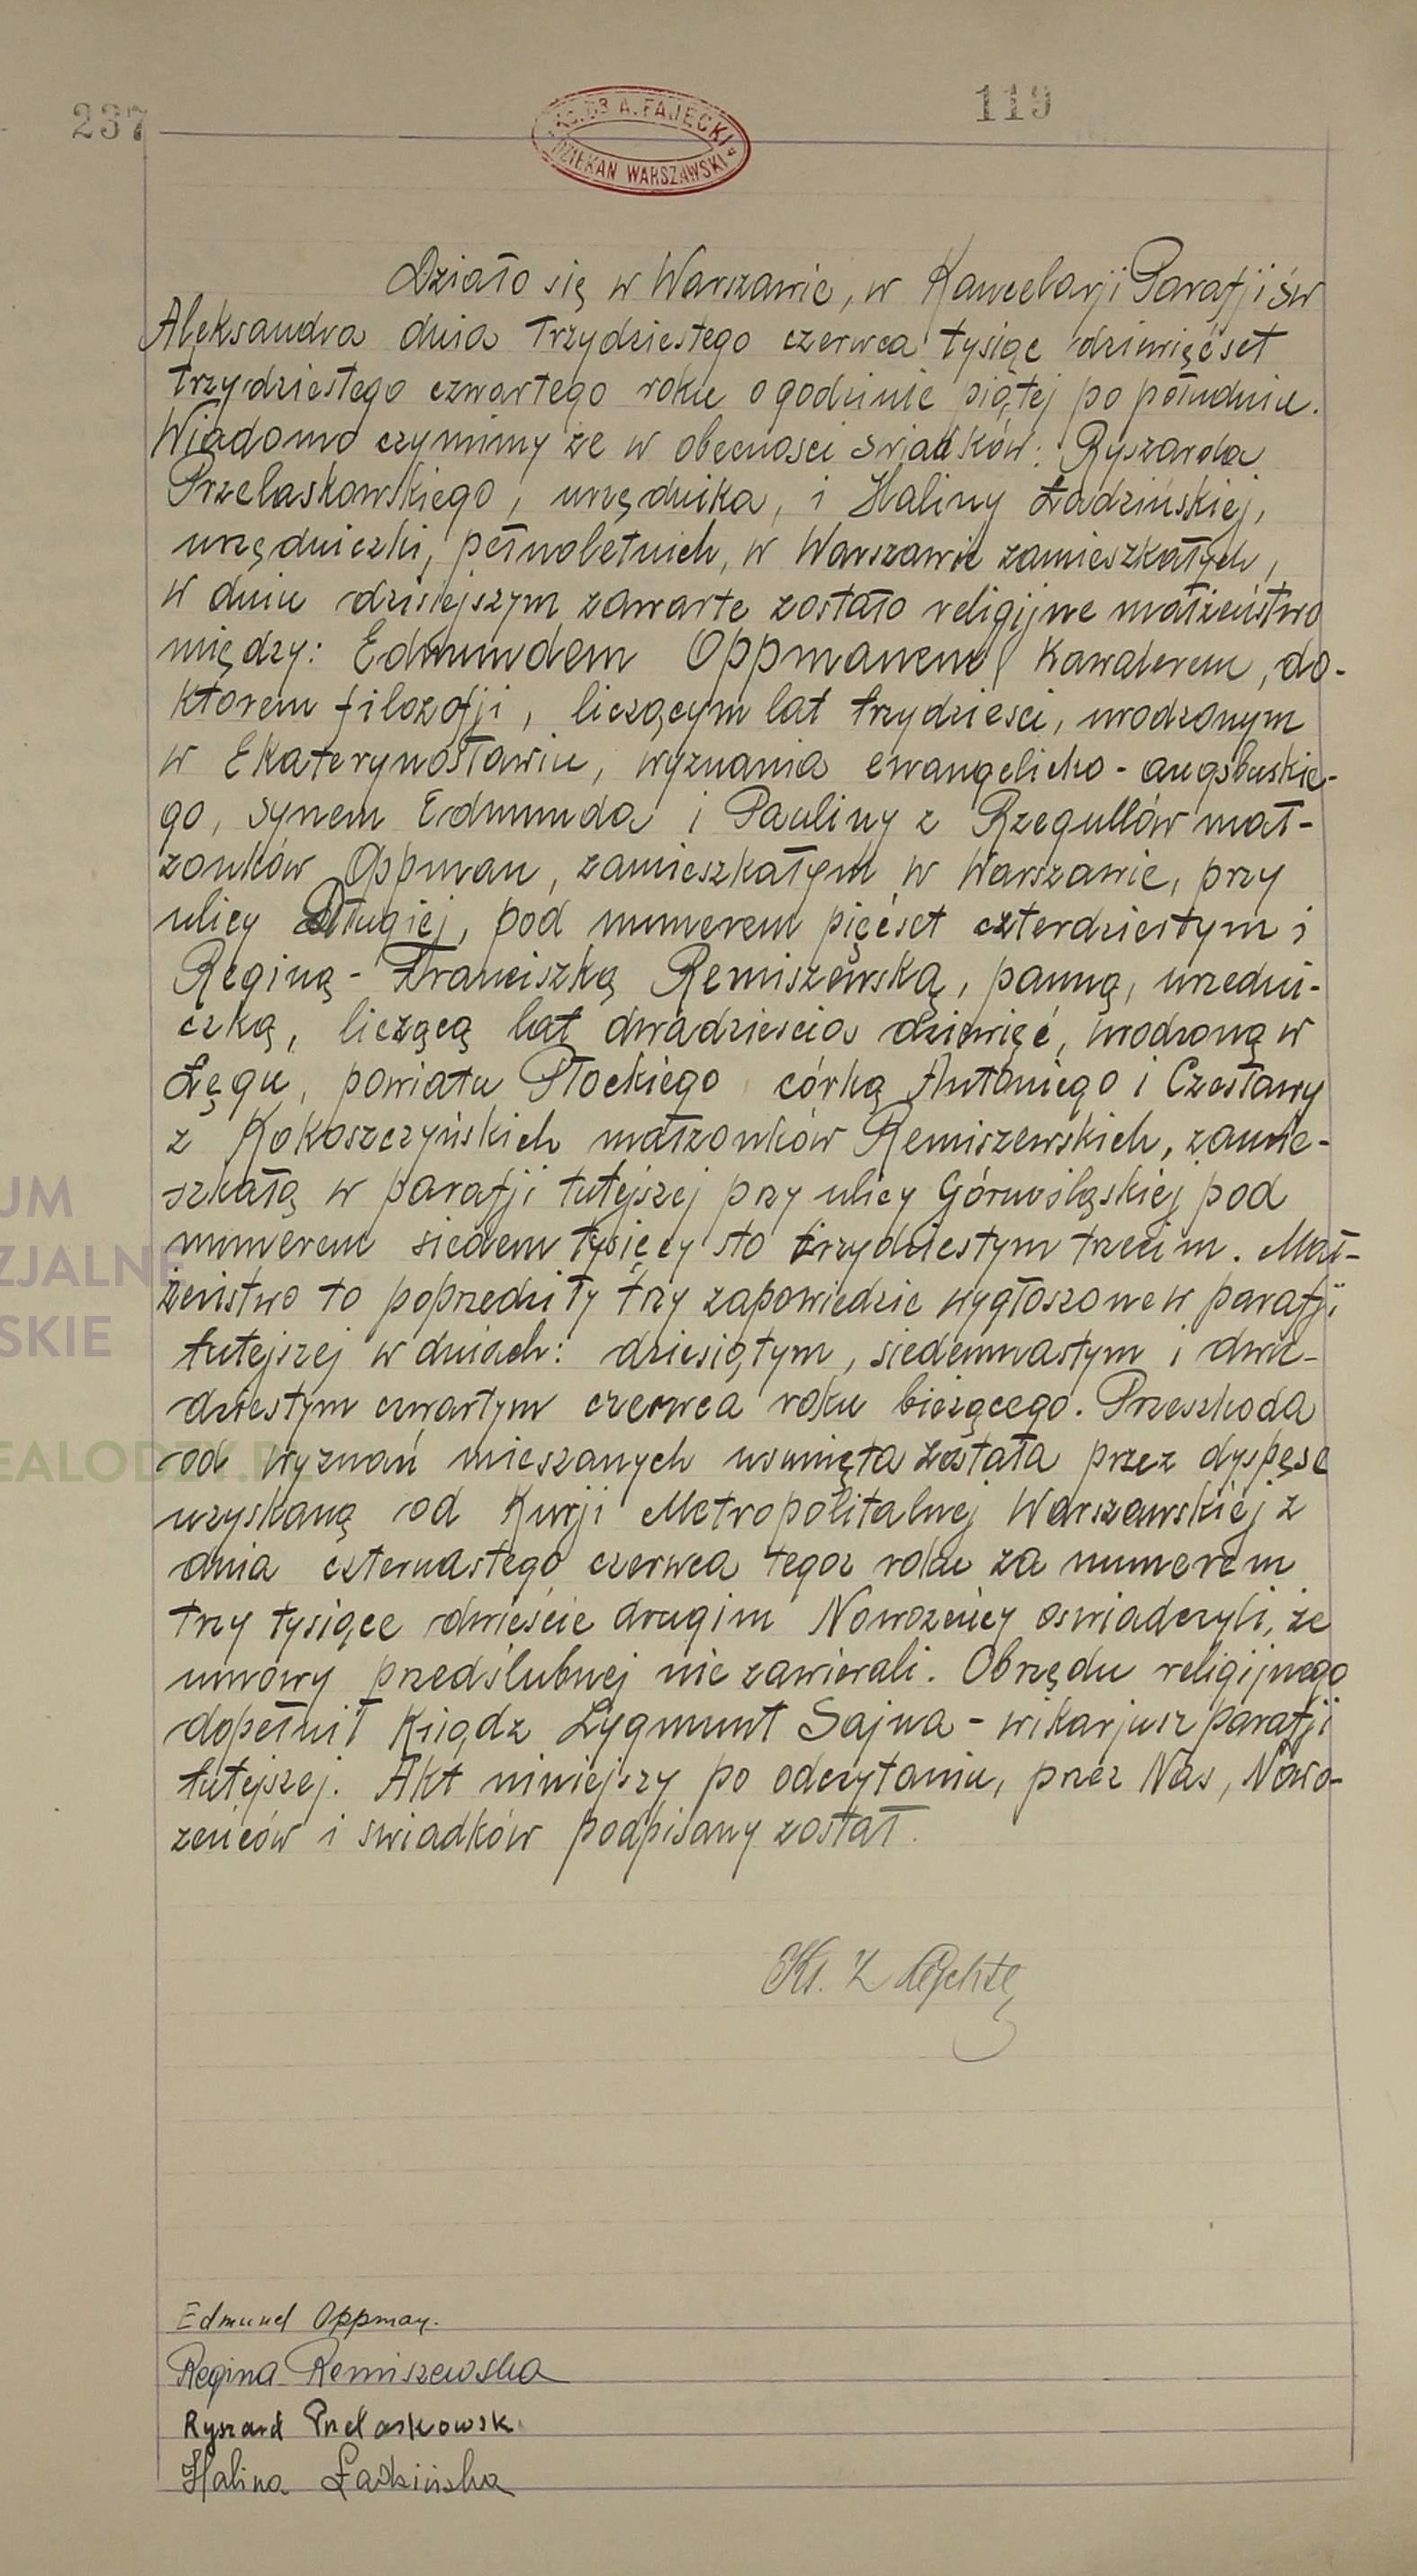 237
119
A. FAJECKI
DZIEKAN WARSZAWSKI
Działo się w Warszawie, w Kancelarji Parafji św
Aleksandra dnia trzydziestego czerwca tysiąc dziewięćset
trzydziestego czwartego roku o godzinie piątej po południu.
Wiadomo czynimy że w obecnosci swiadków: Ryszarda
Przelaskowskiego, urzędnika, i Haliny Ładzińskiej,
urzędniczki, pełnoletnich, w Warszawie zamieszkałych,
w dniu dzisiejszym zawarte zostało religijne małżeństwo
między: Edmundem Oppmanem kawalerem, do-
ktorem filozofji, liczącym lat trzydziesci, urodzonym
w Ekaterynosławiu, wyznania ewangelicko-augsbuskie-
go, synem Edmunda i Pauliny z Rzegullów mał-
zonków Oppman, zamieszkałym w Warszawie, przy
ulicy Długiej, pod numerem pięćset czterdziestym i
Reginą-Franciszką Remiszewską, panną, urzedni-
czką, liczącą lat dwadziescia dziewięć, urodzoną w
Łęgu, powiatu Płockiego córką Antoniego i Czesławy
z Kokoszczyńskich małzonków Remiszewskich, zamie-
szkałą w parafji tutejszej przy ulicy Górnośląskiej pod
numerem siedem tysięcy sto trzydziestym trzecim. Mał-
żeństwo to poprzedziły trzy zapowiedzie wygłoszone w parafji
tutejszej w dniach: dziesiątym, siedemnastym i dwu-
dziestym czwartym czerwca roku bieżącego. Przeszkoda
od wyznań mieszanych usunięta została przez dyspęsę
uzyskaną od Kurji Metropolitalnej Warszawskiej z
dnia czternastego czerwca tegoz roku za numerem
trzy tysiące dwieście drugim Nowozeńcy oswiadczyli, że
umowy przedślubnej nie zawierali. Obrzędu religijnego
dopełnił Ksiądz Zygmunt Sajna - wikarjusz parafji
tutejszej. Akt niniejszy po odczytaniu, przez Nas, Nowo-
zeńców i swiadków podpisany został.
Ks. Z
Edmund Oppman.
Regina Remiszewska
Ryszard Przelaskowski
Halina Ładzińska
UM
ZJALNE
SKIE
EALODZY.P